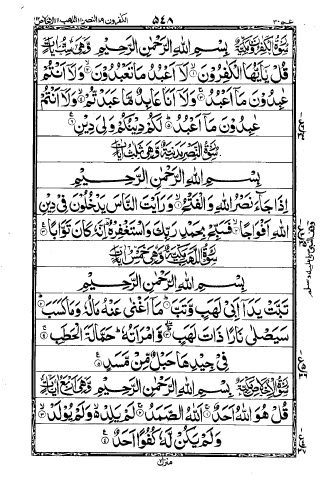 عم ٣٠ ٥٤٨ الكفرون ١٠٩ النصر ١١٠ اللهب ١١١
سُوْرَةُ الْكٰفِرُوْنَ مَكِّيَّةٌ بِسْمِ اللهِ الرَّحْمٰنِ الرَّحِيْمِ وَهِيَ سِتُّ اٰيَاتٍ
قُلْ يٰٓاَيُّهَا الْكٰفِرُوْنَ ۙ﴿١﴾ لَآ اَعْبُدُ مَا تَعْبُدُوْنَ ۙ﴿٢﴾ وَلَآ اَنْتُمْ
عٰبِدُوْنَ مَآ اَعْبُدُ ۚ﴿٣﴾ وَلَآ اَنَا عَابِدٌ مَّا عَبَدْتُّمْ ۙ﴿٤﴾ وَلَآ اَنْتُمْ
عٰبِدُوْنَ مَآ اَعْبُدُ ؕ﴿٥﴾ لَكُمْ دِيْنُكُمْ وَلِيَ دِيْنِ ﴿٦﴾
سُوْرَةُ النَّصْرِ مَدَنِيَّةٌ وَهِيَ ثَلٰثُ اٰيَاتٍ
بِسْمِ اللهِ الرَّحْمٰنِ الرَّحِيْمِ
اِذَا جَآءَ نَصْرُ اللهِ وَالْفَتْحُ ۙ﴿١﴾ وَرَاَيْتَ النَّاسَ يَدْخُلُوْنَ فِيْ دِيْنِ
اللهِ اَفْوَاجًا ۙ﴿٢﴾ فَسَبِّحْ بِحَمْدِ رَبِّكَ وَاسْتَغْفِرْهُ ؕ اِنَّهٗ كَانَ تَوَّابًا ﴿٣﴾
سُوْرَةُ اللَّهَبِ مَكِّيَّةٌ وَهِيَ خَمْسُ اٰيَاتٍ
بِسْمِ اللهِ الرَّحْمٰنِ الرَّحِيْمِ
تَبَّتْ يَدَآ اَبِيْ لَهَبٍ وَّتَبَّ ؕ﴿١﴾ مَآ اَغْنٰى عَنْهُ مَالُهٗ وَمَا كَسَبَ ؕ﴿٢﴾
سَيَصْلٰى نَارًا ذَاتَ لَهَبٍ ۚ﴿٣﴾ وَّامْرَاَتُهٗ ؕ حَمَّالَةَ الْحَطَبِ ۚ﴿٤﴾
فِيْ جِيْدِهَا حَبْلٌ مِّنْ مَّسَدٍ ﴿٥﴾
سُوْرَةُ الْاِخْلَاصِ مَكِّيَّةٌ بِسْمِ اللهِ الرَّحْمٰنِ الرَّحِيْمِ وَهِيَ اَرْبَعُ اٰيَاتٍ
قُلْ هُوَ اللهُ اَحَدٌ ۚ﴿١﴾ اَللهُ الصَّمَدُ ۚ﴿٢﴾ لَمْ يَلِدْ ۙ وَلَمْ يُوْلَدْ ۙ﴿٣﴾
وَلَمْ يَكُنْ لَّهٗ كُفُوًا اَحَدٌ ﴿٤﴾
منزل